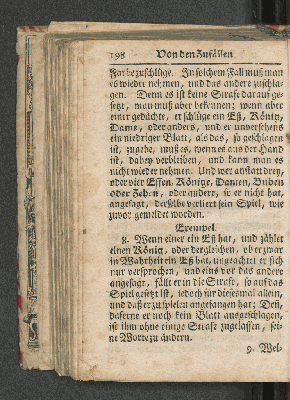 198 Von den Zufällen
Farbe zuschlüge. In solchem Fall muß man
es wieder nehmen, und das andere zuschla-
gen. Denn es ist keine Strafe darauf ge-
setzt, man muß aber bekennen; wenn aber
einer gedächte, er schlüge ein Eß, König,
Dame, oder anders, und er unversehens
ein niedriger Blatt, als das, so geschlagen
ist, zugebe, muß es, wenn es aus der Hand
ist, dabey verbleiben, und kann man es
nicht wieder nehmen. Und wer anstatt drey,
oder vier Essen, Könige, Damen, Buben
oder Zehen, oder anders, so er nicht hat,
angesagt, derselbe verliert sein Spiel, wie
zuvor gemeldet worden.
Exempel.
8. Wenn einer ein Eß hat, und zählet
einen König, oder dergleichen, ob er zwar
in Wahrheit ein Eß hat, ungeachtet er sich
nur versprochen, und eins vor das andere
angesagt, fällt er in die Strafe, so auf das
Spiel gesetzt ist, jedoch für diesesmal allein,
und daß er zu spielen angefangen hat; Deñ,
daferne er noch kein Blatt ausgeschlagen,
ist ihm ohne einige Strafe zugelassen, sei-
ne Worte zu ändern.
9. Wel-